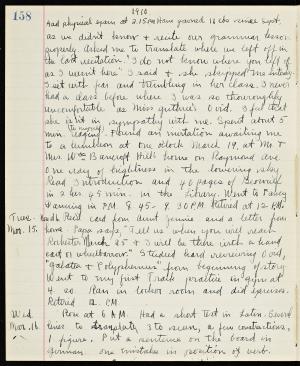 158
1910
had physical exam at 2.15 P.M. Have gained 16 lbs since Sept.
as we didn't know & recite our grammar lesson
properly. Asked me to translate where we left off in
the last recitation. "I do not know where you left off
as I wasn't here" I said & she skipped me
I sit with fear and trembling in her class. I never
had a class before when I was so thoroughly
uncomfortable as Miss Guthrie's Ovid. I feel that
she isn't in sympathy with me. Spent about 5
min reading to myself & found an invitation awaiting me
to a luncheon at one o'clock March 19, at Mr &
Mrs Wm Bancroft Hill's home on Raymond Ave
One ray of brightness in the lowering sky
Read Introduction and 40 pages of
in 2 hrs & 5 min. in the library. Went to Fancy
Dancing in P.M. & 45 - 9.30 P.M. Retired at 12 P.M.
Tues.
Mar. 15.
Recd card from Aunt Jennie and a letter from
home. Papa says, "Tell us when you will reach
Rochester March 25 & I will be there with a hand
cart or wheelbarrow." Studied hard reviewing Ovid,
"Galatea & Polyphemus" from beginning of story
Went to my first Track practice in gym at
4 so. Ran in locker room and did exercises.
Retired 12 P.M.
Wed.
Mar. 16
Rose at 6 A.M. Had a short test in Latin. Several
lines to translate, 3 to scan, a few constructions,
1 figure. Put a sentence on the board in
German one mistake in position of verb.